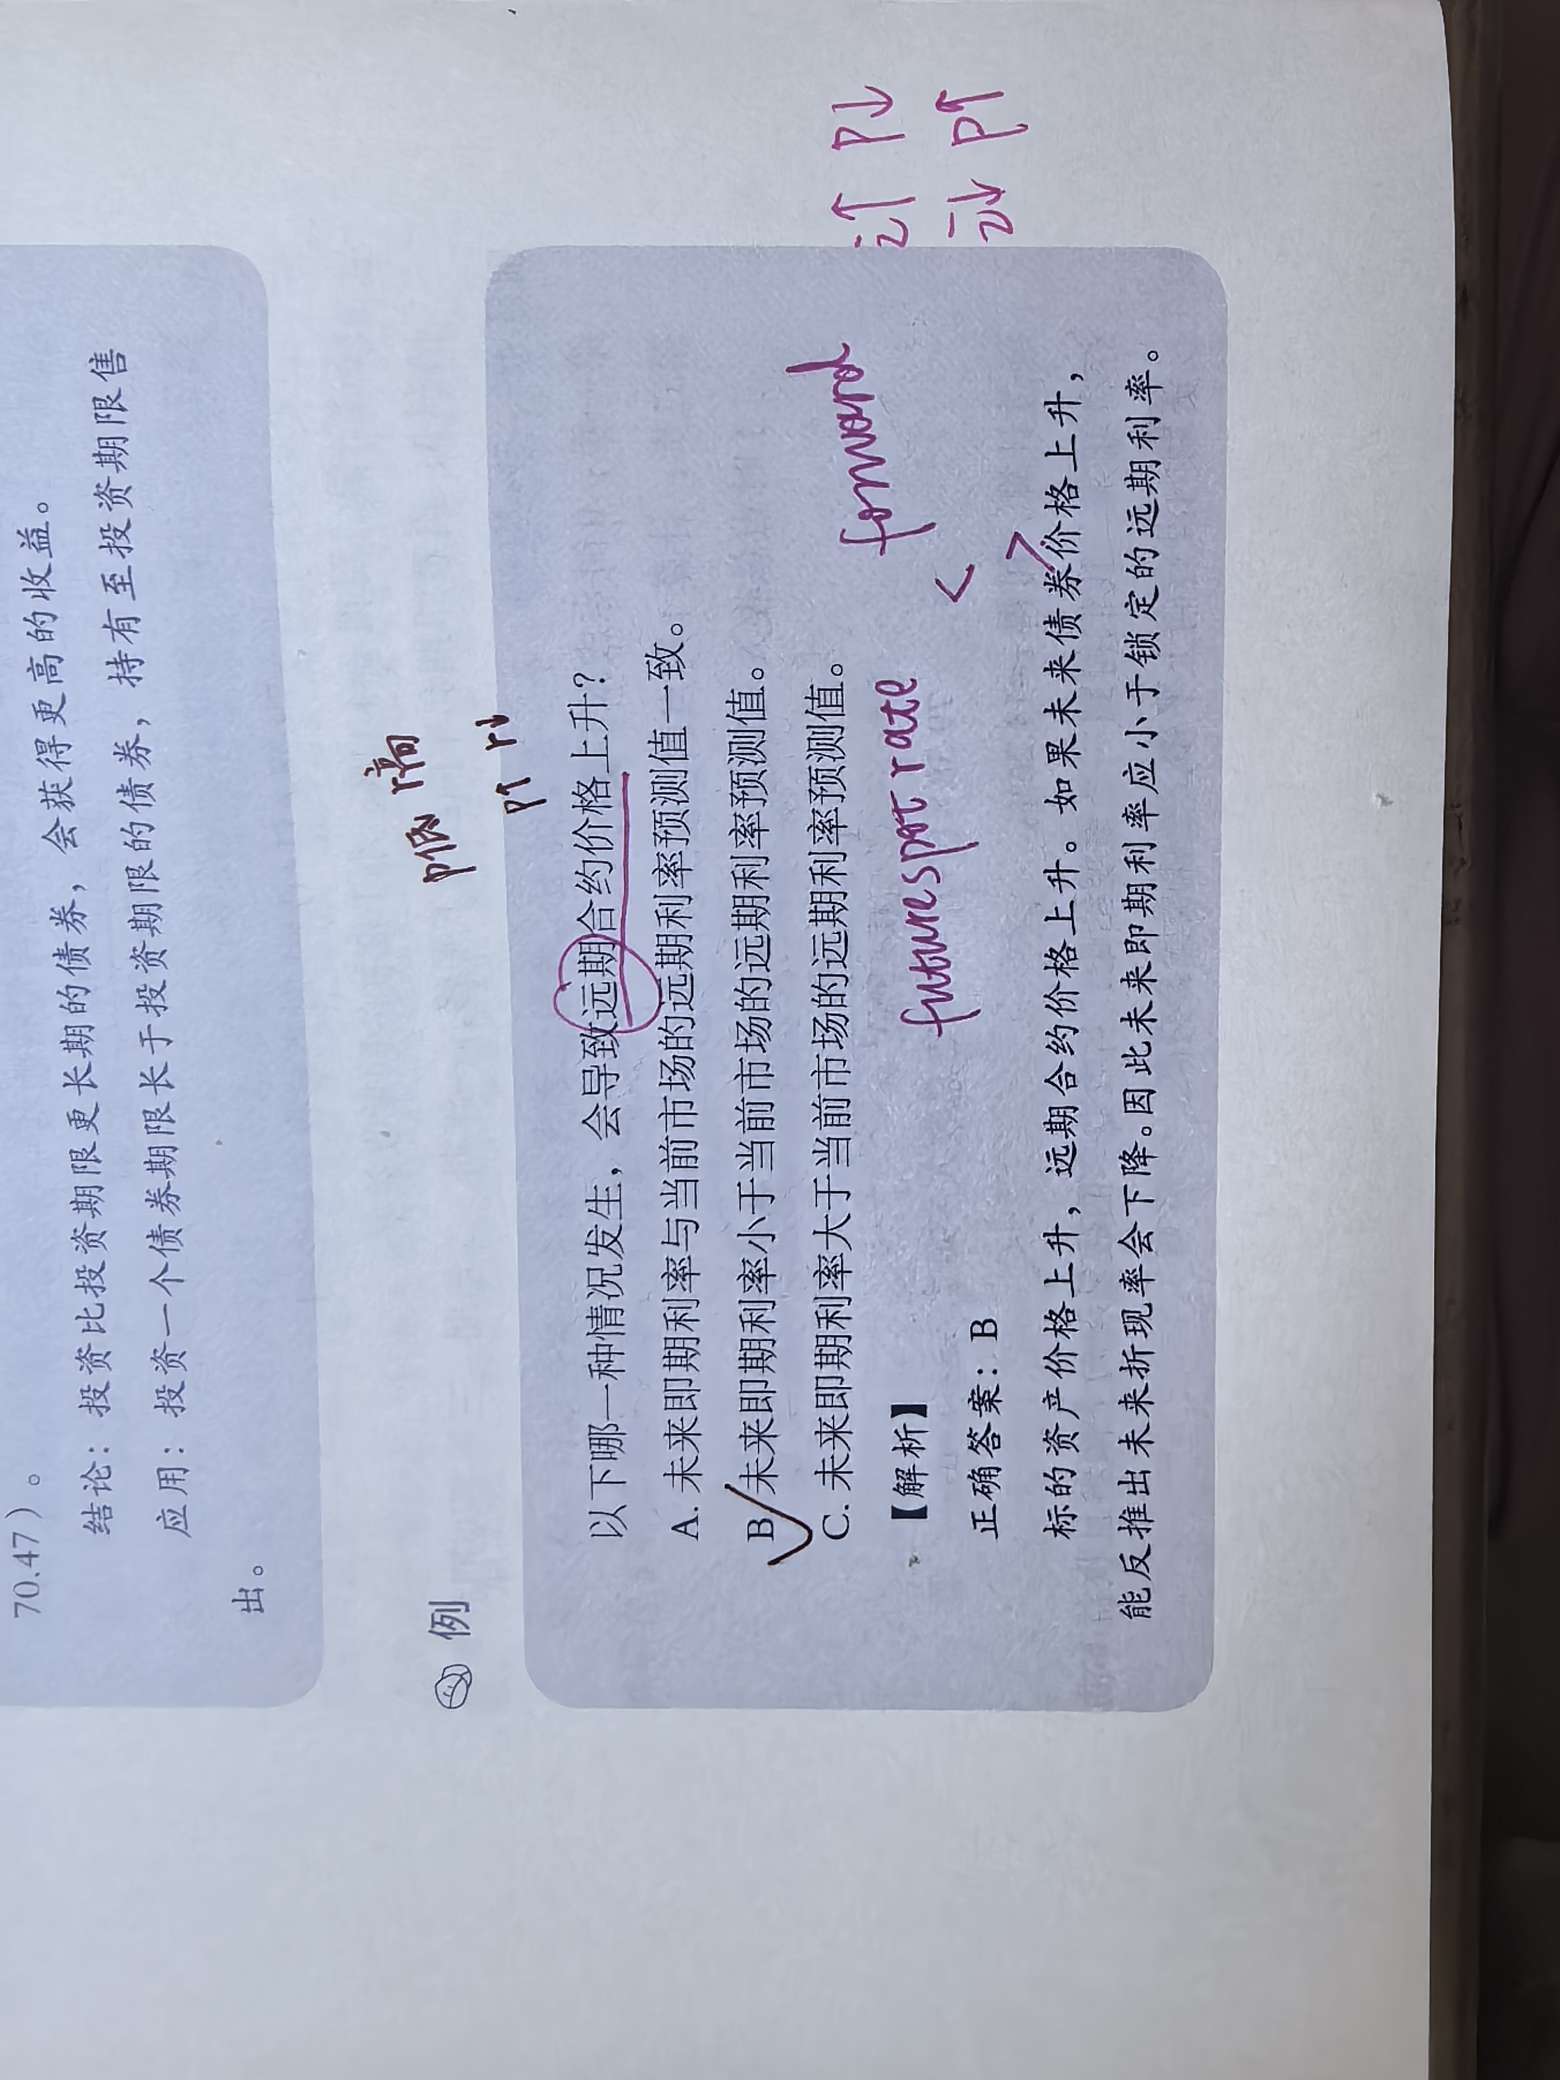 70.47）。
结论：投资比投资期限更长期的债券，会获得更高的收益。
应用：投资一个债券期限长于投资期限的债券，持有至投资期限售
出。
P低 r高
例
P↑ r↓
以下哪一种情况发生，会导致远期合约价格上升？
A. 未来即期利率与当前市场的远期利率预测值一致。
B. 未来即期利率小于当前市场的远期利率预测值。
C. 未来即期利率大于当前市场的远期利率预测值。
i↑ P↓
i↓ P↑
【解析】
future spot rate < forward
正确答案：B
标的资产价格上升，远期合约价格上升。如果未来债券价格上升，
能反推出未来折现率会下降。因此未来即期利率应小于锁定的远期利率。